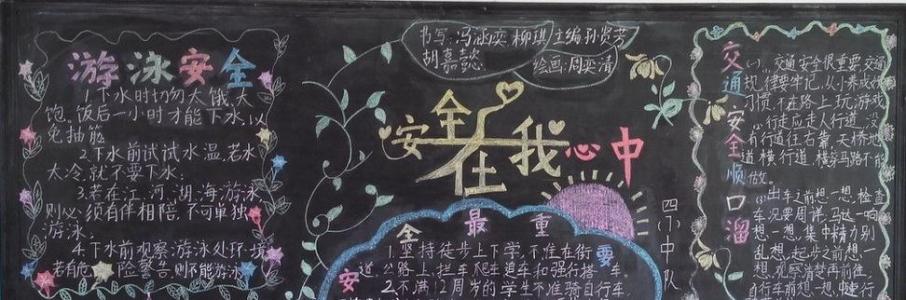 游泳安全
1.下水时切勿太饿、太
饱。饭后一小时才能下水,以
免抽筋
2.下水前试试水温,若水
太冷,就不要下水;
3.若在江、河、湖、海游泳,
则必须有伴相陪,不可单独
游泳;
4.下水前观察游泳处环境,
若有危险警告,则不能游泳
书写:冯涵奕 柳琪 主编 孙贤芳
胡嘉懿 绘画:周奕清
安全在我心中
四小中队
安全最重要
1.坚持徒步上下学,不准在街
道、公路上拦车、爬车、追车和强行搭车。
2.不满12周岁的学生不准骑自行车,
交通安全顺口溜
(一)、交通安全很重要,交通
规律要牢记,从小养成好
习惯,不在路上玩游戏
行走应走人行道,没
有行道往右靠,天桥地
道横行道,横穿马路不能
做。
出车之前想一想,检查
车况要周详,马达一响
想一想,集中精力别
乱想,起步之前想一
想,观察清楚再前往,
自行车前想一想,中速行